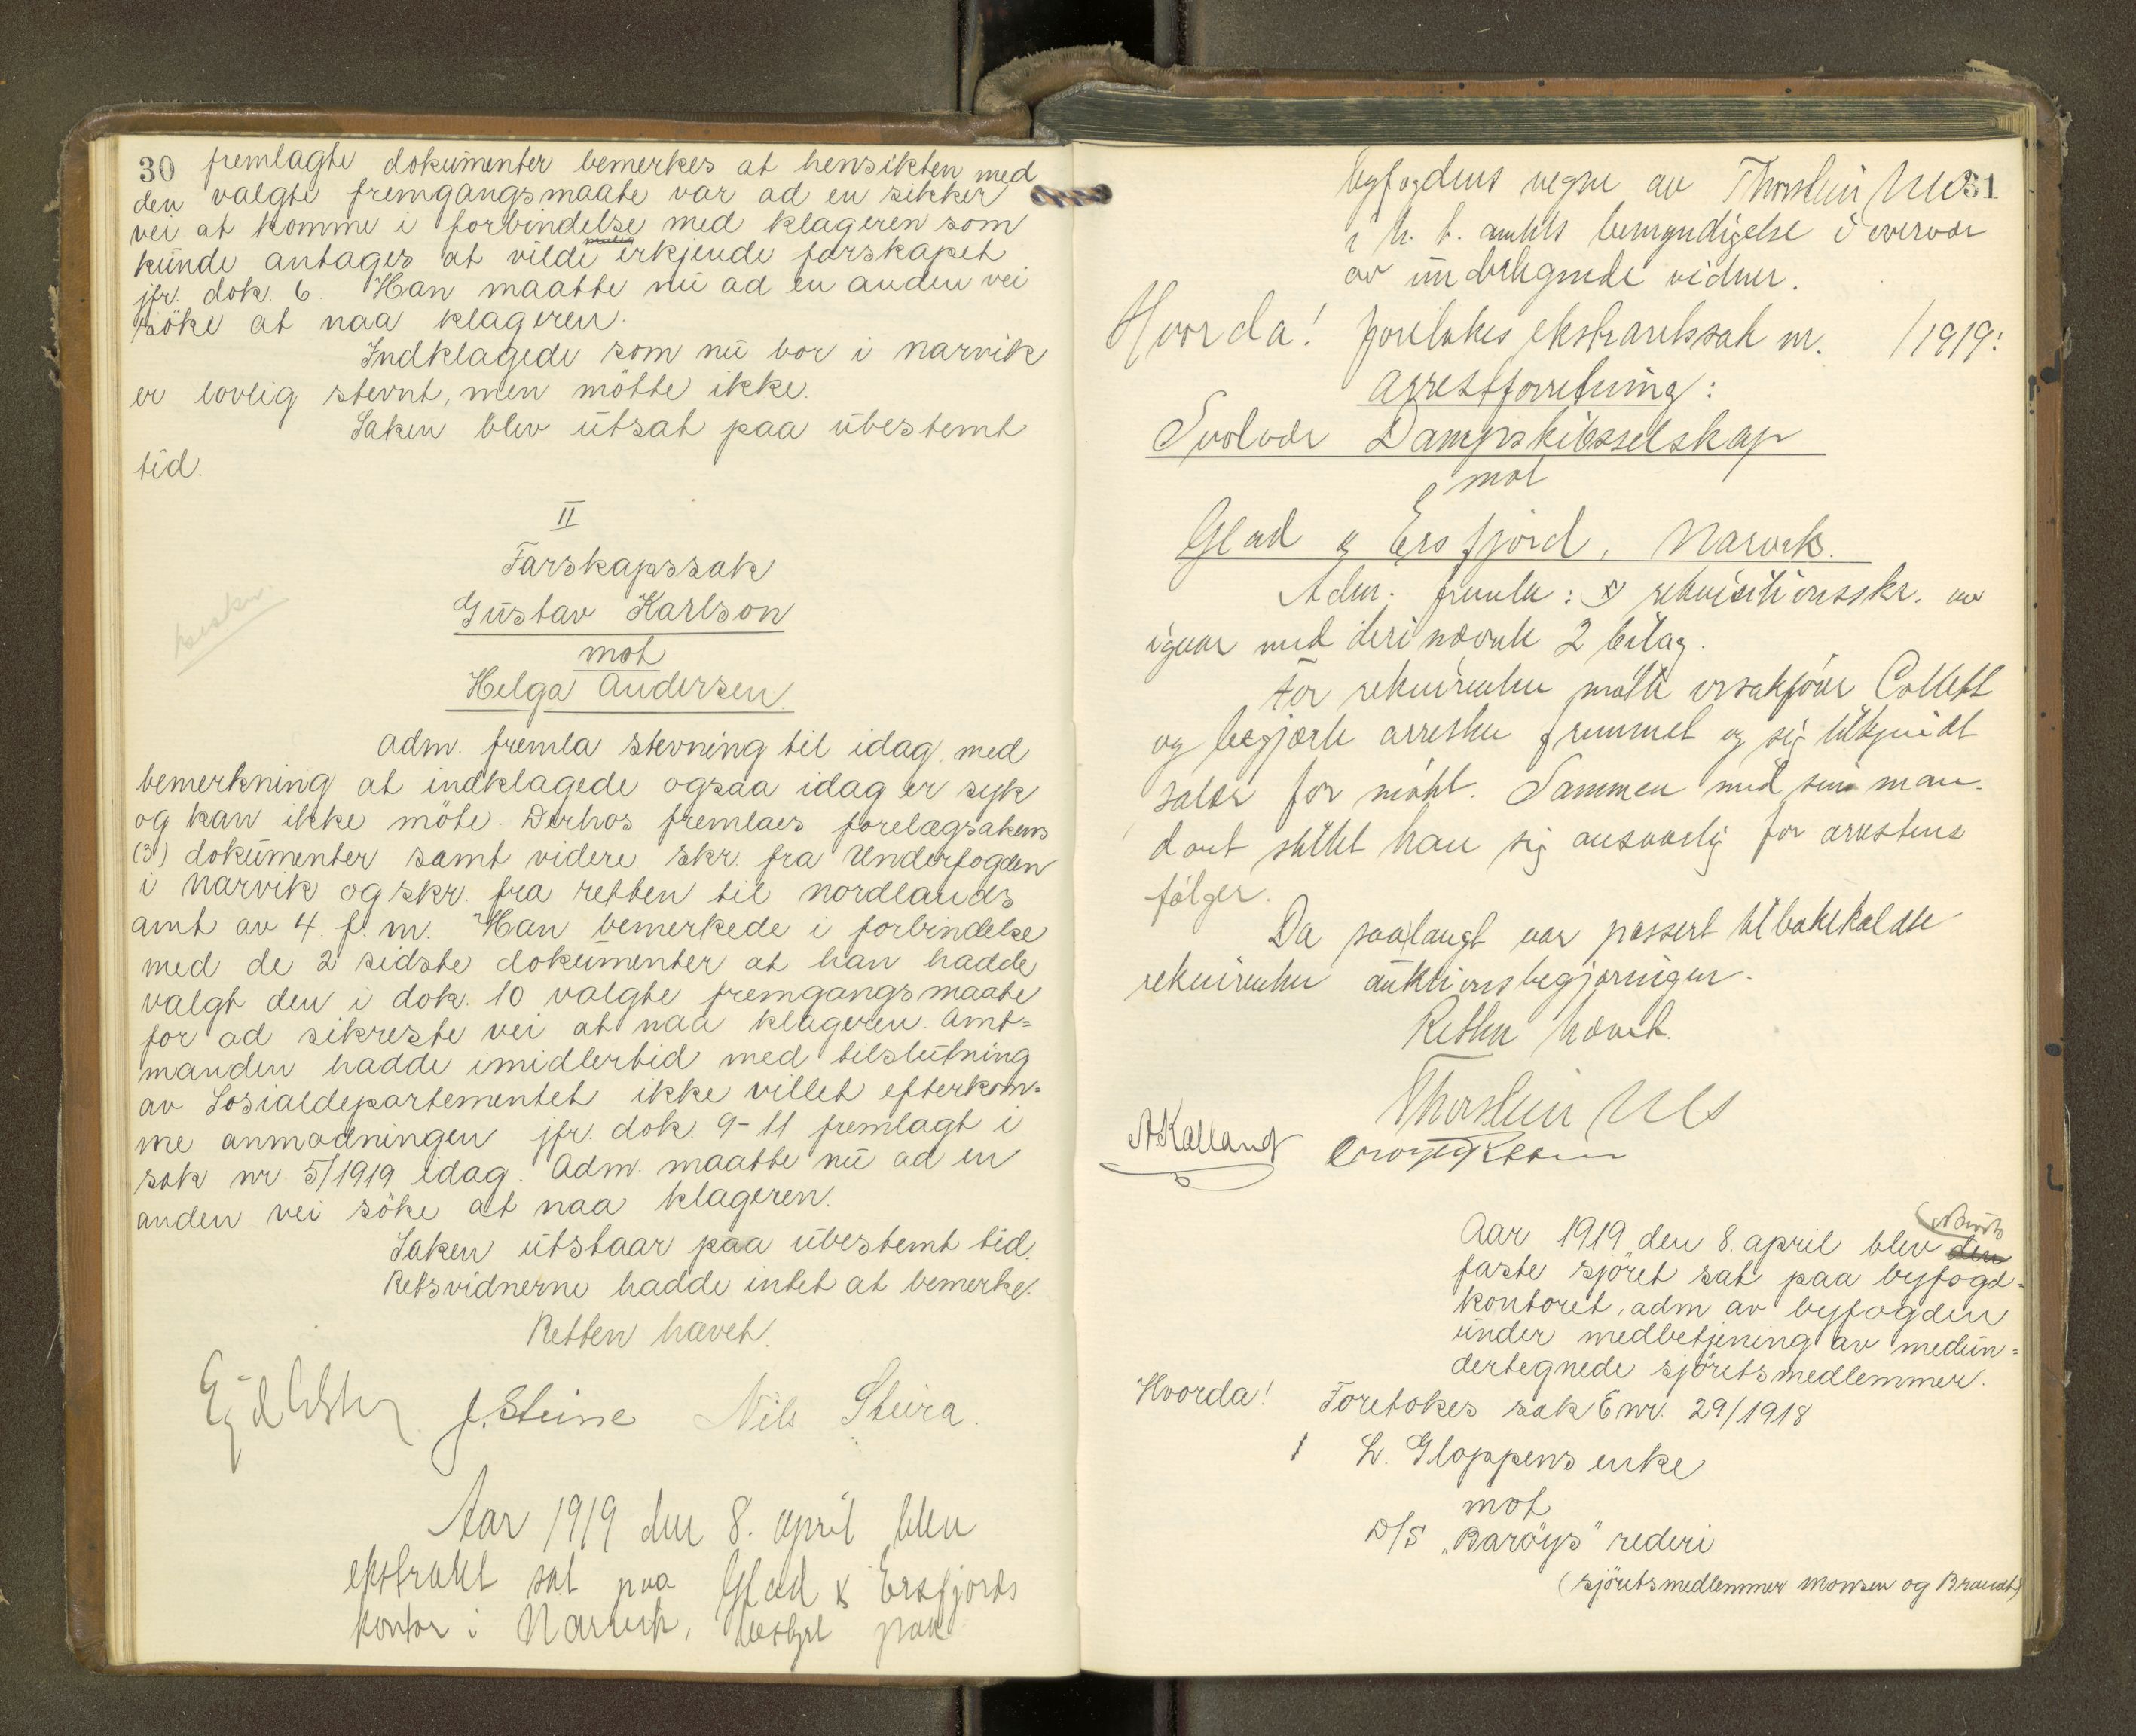 30 fremlagte dokumenter bemerkes at hensikten med
den valgte fremgangsmaate var ad en sikker
vei at komme i forbindelse med klageren som
kunde antages at vilde erkjende farskapet
jfr. dok. 6. Han maatte nu ad en anden vei
söke at naa klageren.
Indklagede som nu bor i Narvik
er lovlig stevnt, men mötte ikke.
Saken blev utsat paa ubestemt
tid.
II
Farskapssak
Gustav Karlson
mot
Helga Andersen
Adm. fremla stevning til idag, med
bemerkning at indklagede ogsaa idag er syk
og kan ikke möte. Derhos fremlaes forelægsakens
(3) dokumenter samt videre skr. fra Underfogden
i Narvik og skr. fra retten til Nordlands
amt av 4. f. m. Han bemerkede i forbindelse
med de 2 sidste dokumenter at han hadde
valgt den i dok. 10 valgte fremgangsmaate
for ad sikreste vei at naa klageren. Amt=
manden hadde imidlertid med tilslutning
av Sosialdepartementet ikke villet efterkom=
me anmodningen jfr. dok. 9-11 fremlagt i
sak nr. 5/1919 idag. Adm. maatte nu ad en
anden vei söke at naa klageren.
Saken utstaar paa ubestemt tid.
Retsvidnerne hadde intet at bemerke.
Retten hævet.
J. Steine Nils Steira.
Aar 1919 den 8. april blev
ekstraret sat paa Glad & Ersfjords
kontor i Narvik, bestyrt paa
31
byfogdens vegne av Thorstein
i h. t. amtets bemyndigelse i overvær
av undertegnede vidner.
Hvorda! foretokes ekstraretssak nr. /1919:
Arrestforretning:
Svolvær Dampskibsselskap
mot
Glad & Ersfjord, Narvik.
Adm. fremla: rekvisitionsskr. av
igaar med deri nævnte 2 bilag.
For rekvirenten mötte orsakförer Collett
og begjærte arresten fremmet og sig tilkjendt
salær for mötet. Sammen med sin man-
dant stillet han sig ansvarlig for arrestens
fölger.
Da saalangt var passert tilbakekaldte
rekvirenten auktionsbegjæringen.
Retten hævet.
Thorstein
A Kalland
Aar 1919 den 8. april blev den Narviks
faste sjöret sat paa byfogd-
kontoret, adm av byfogden
under medbetjening av medun=
dertegnede sjöretsmedlemmer.
Hvorda! Foretokes sak E nr. 29/1918
1 L. Gloppens enke
mot
D/S "Baröys" rederi
(sjöretsmedlemmer Monsen og Brandt)